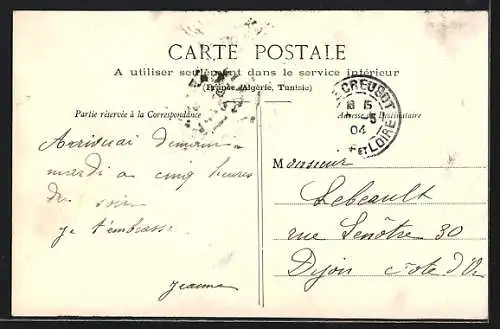 CARTE POSTALE
A utiliser seulement dans le service intérieur
(France, Algérie, Tunisie)
Partie réservée à la Correspondance
Adresse du Destinataire
CREUSOT
18 15
-5
04
ET LOIRE
Arriverai demain
mardi a cinq heures
du soir
je t'embrasse
Jeanne
Monsieur
Lebeault
rue Lenôtre 30
Dijon côte d'Or